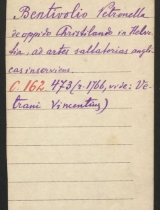 Bentivolio Petronella
de oppido Christilando in Helve-
tia, ad artes saltatorias angli-
cas inserviens.
C. 162. 473 (a. 1766, vide: Ve-
trani Vincentius)